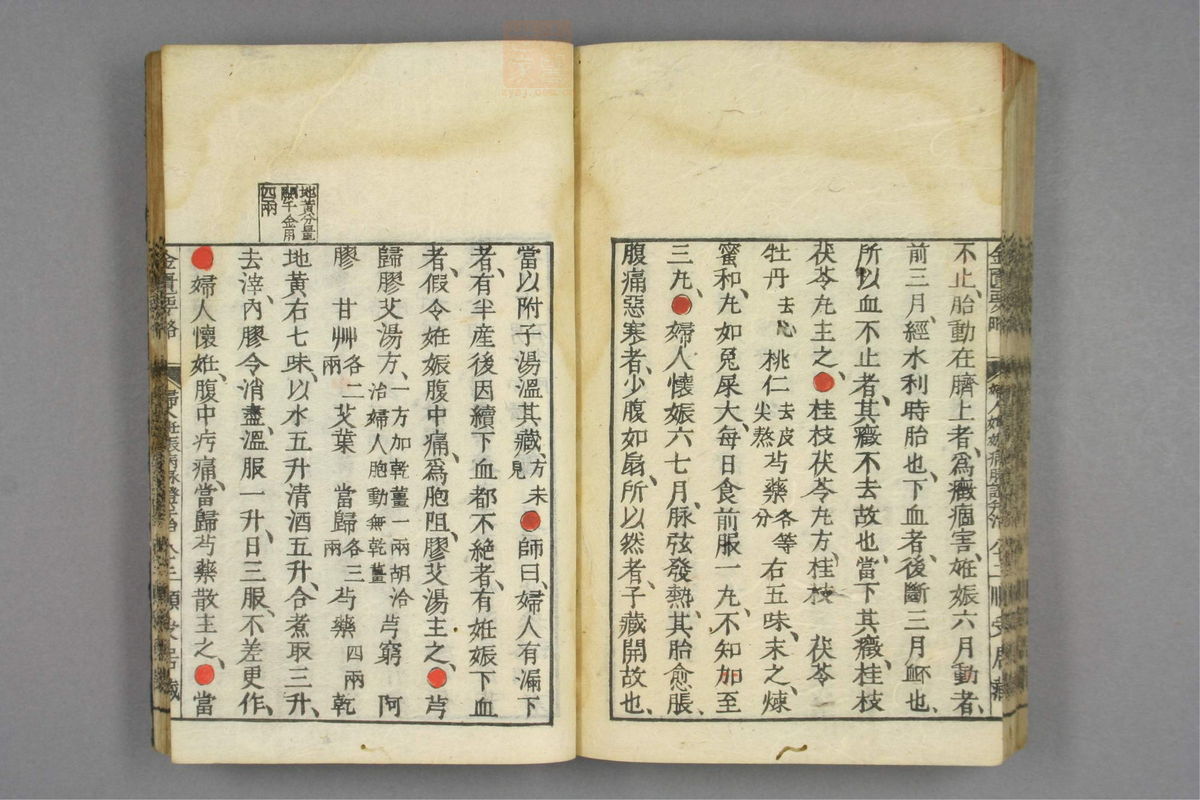 不止、胎動在臍上者、爲癥痼害、姙娠六月動者、
前三月、經水利時胎也、下血者、後斷三月衃也、
所以血不止者、其癥不去故也、當下其癥、桂枝
茯苓丸主之、●桂枝茯苓丸方、桂枝 茯苓
牡丹去心 桃仁去皮尖熬 芍藥各等分 右五味、末之、煉
蜜和、丸如兎屎大、每日食前服一丸、不知加至
三丸、●婦人懷娠六七月、脉弦發熱、其胎愈脹、
腹痛惡寒者、少腹如扇、所以然者、子藏開故也、
當以附子湯溫其藏、方未見 ●師曰、婦人有漏下
者、有半産後因續下血都不絶者、有姙娠下血
者、假令姙娠腹中痛、爲胞阻、膠艾湯主之、●芎
歸膠艾湯方、一方加乾薑一兩胡洽治婦人胞動無乾薑 芎窮 阿
膠 甘艸各二兩 艾葉 當歸各三兩 芍藥四兩 乾
地黃右七味、以水五升清酒五升、合煮取三升、
去滓、內膠令消盡、溫服一升、日三服、不差更作、
●婦人懷姙、腹中㽲痛、當歸芍藥散主之、●當
地黃分量
闕千金用
四兩
金匱要略